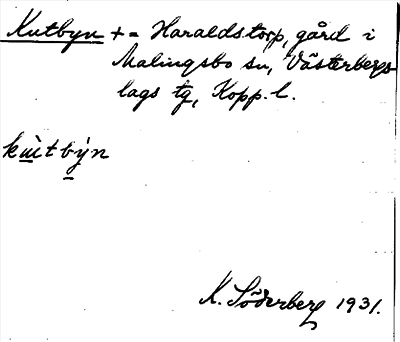 Kutbyn += Haraldstorp, gård i
Malingsbo sn, Västerbergs
lags tg, Kopp. l.
kùtbýn
K. Söderberg 1931.